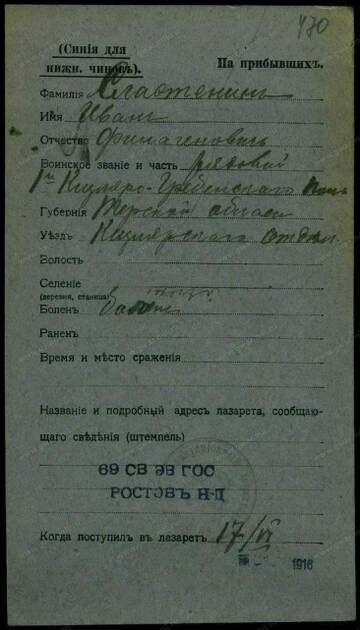 470
(Синія для
нижн. чиновъ).
На прибывшихъ.
Фамилія Сластенинъ
Имя Иванъ
Отчество
Воинское званіе и часть рядовой
1го Кизляро-Гребенского полк
Губернія Терской области
Уѣздъ Кизлярскаго отдѣл.
Волость
Селеніе
(деревня, станица)
Боленъ болен
Раненъ
Время и мѣсто сраженія
Названіе и подробный адресъ лазарета, сообщаю-
щаго свѣдѣнія (штемпель)
69 СВ ЭВ ГОС
РОСТОВЪ Н-Д
Когда поступилъ въ лазаретъ 17/VI
1916